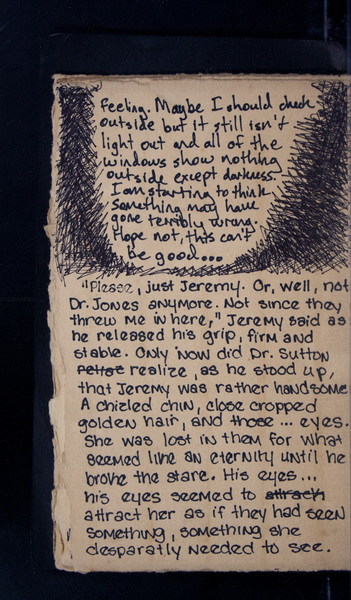 feeling. Maybe I should check
outside but it still isn't
light out and all of the
windows show nothing
outside except darkness.
I am starting to think
something may have
gone terribly wrong.
Hope not, this can't
be good...
"Please, just Jeremy. Or, well, not
Dr. Jones anymore. Not since they
threw me in here," Jeremy said as
he released his grip, firm and
stable. Only now did Dr. Sutton
realize, as he stood up,
that Jeremy was rather handsome
A chizled chin, close cropped
golden hair, and those ... eyes.
She was lost in them for what
seemed like an eternity until he
broke the stare. His eyes...
his eyes seemed to attrach
attract her as if they had seen
something, something she
desparatly needed to see.